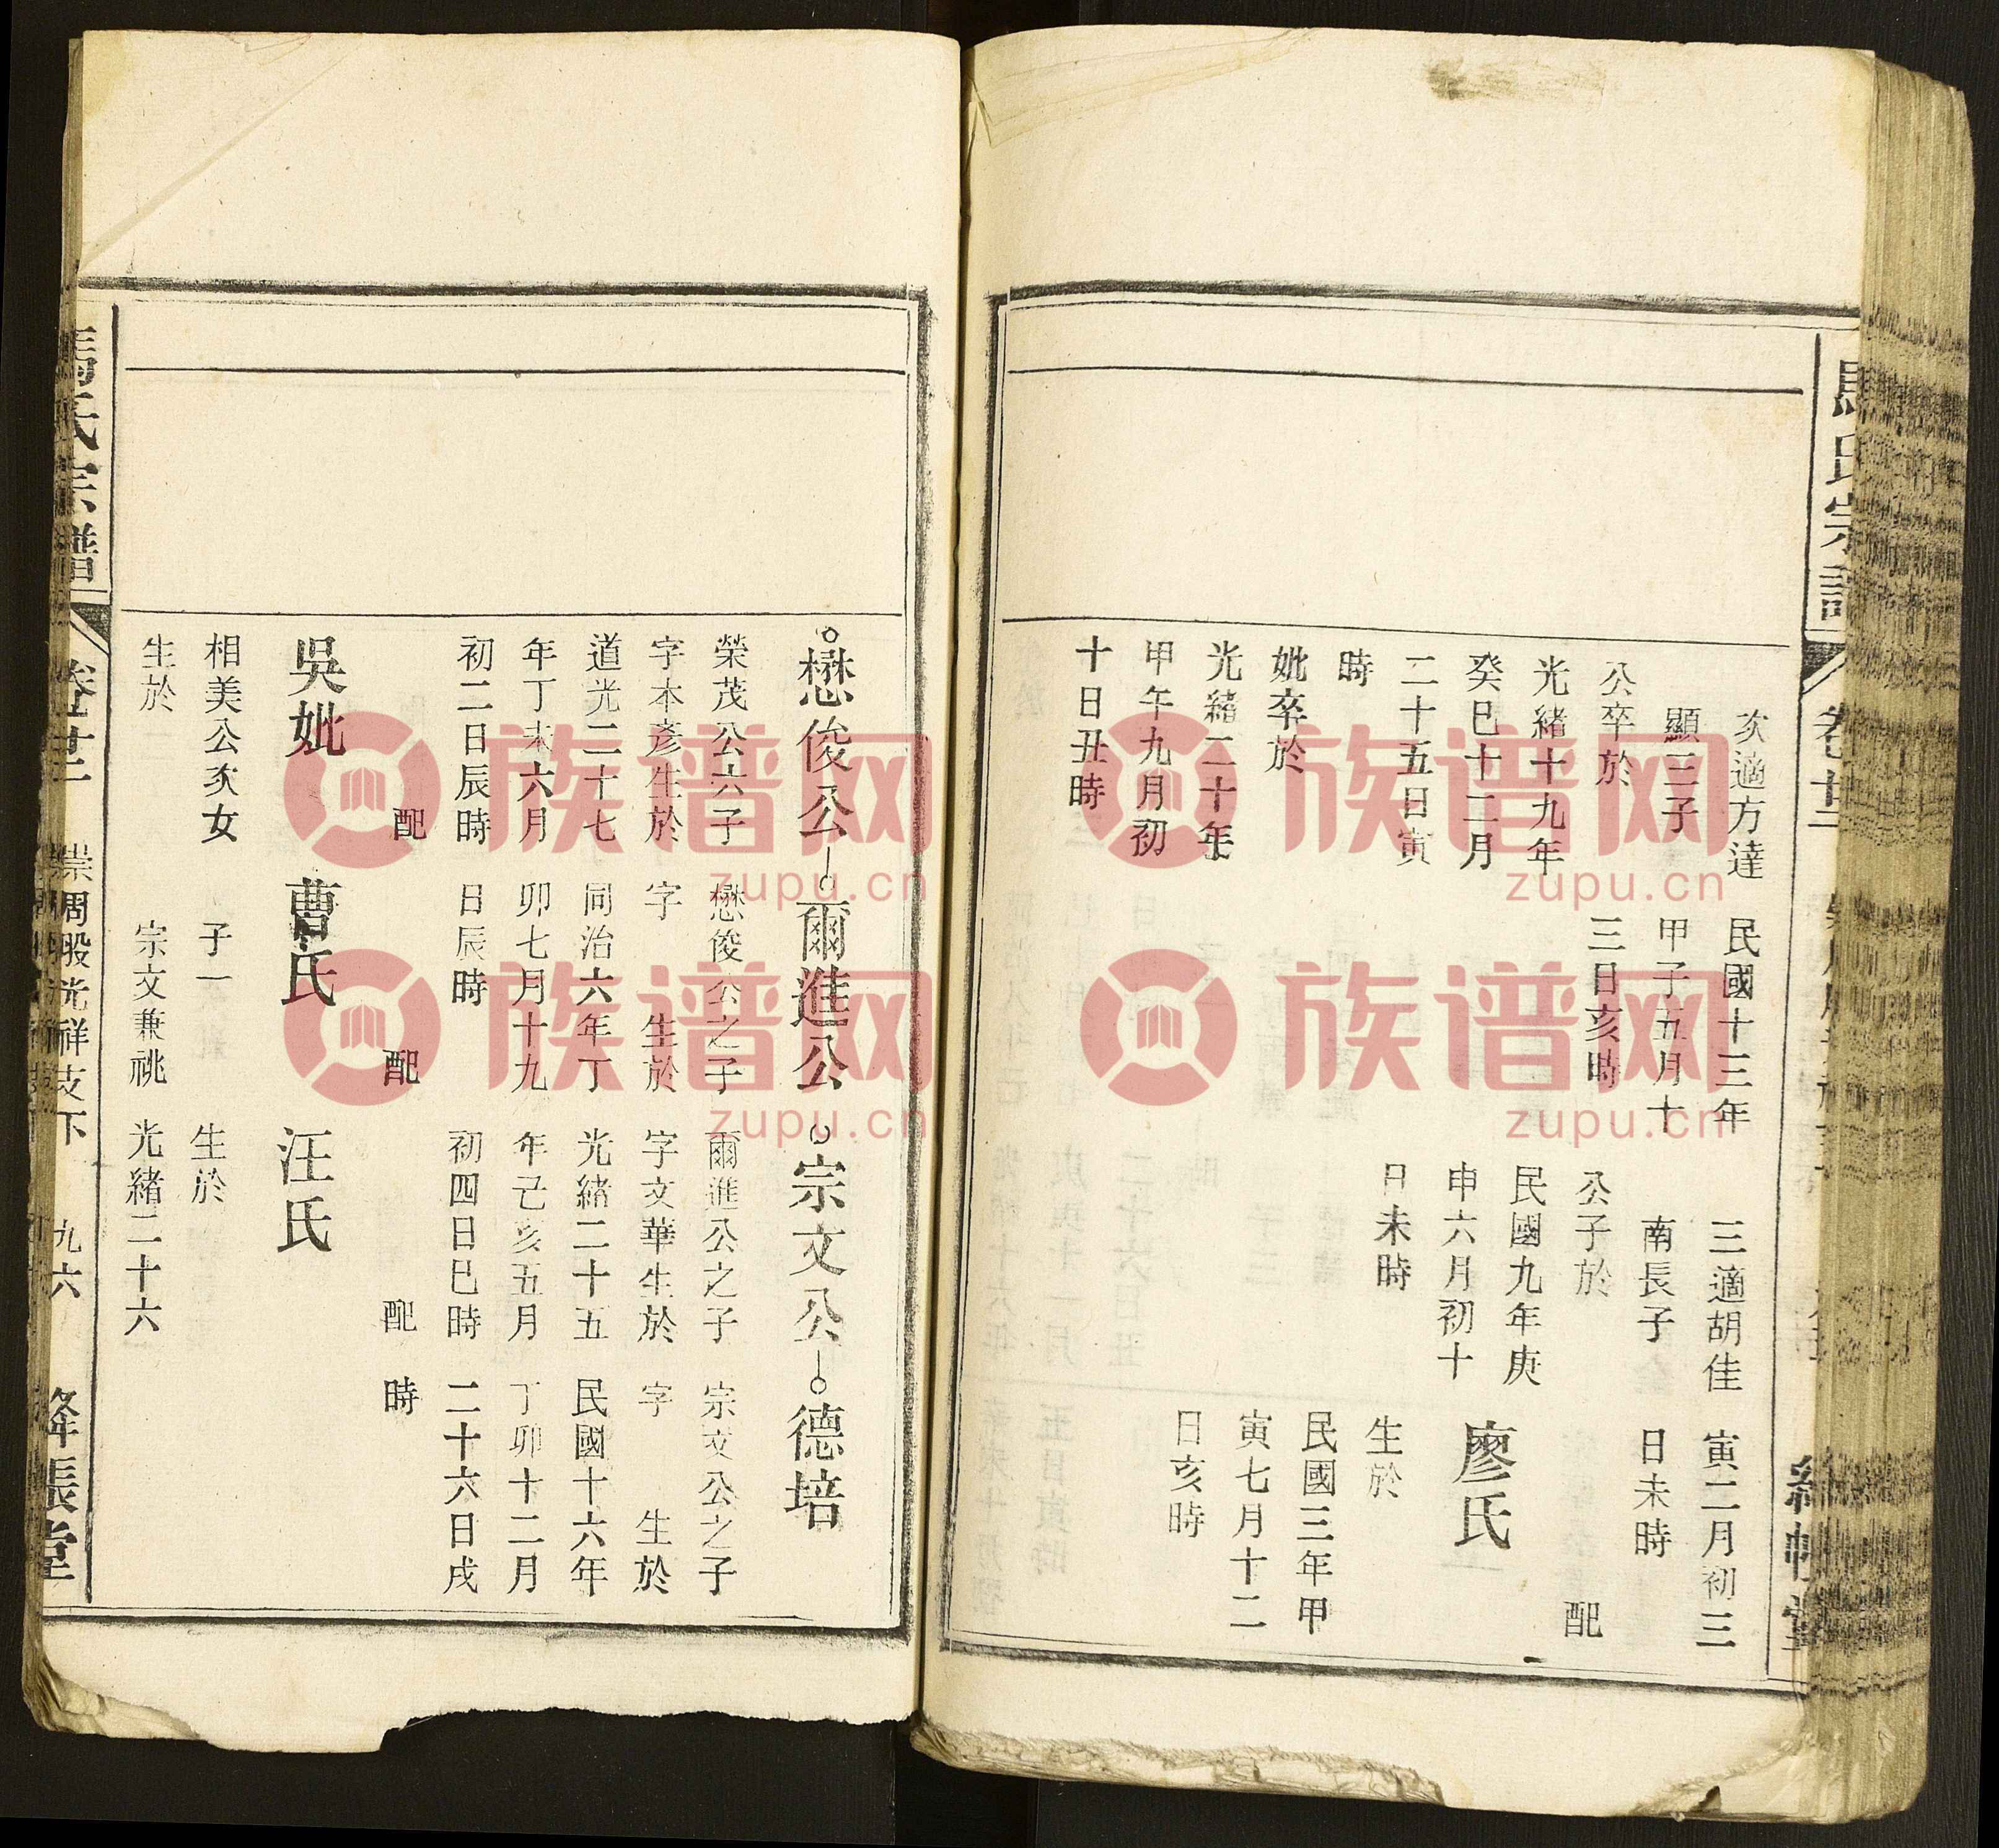 馬氏宗譜
次適方達
顯三子
公卒於
光緒十九年
癸巳十二月
二十五日寅
時
妣卒於
光緒二十年
甲午九月初
十日丑時
民國十三年
甲子五月十
三日亥時
三適胡佳
南長子
公子於
民國九年庚
申六月初十
日未時
寅二月初三
日未時
配
廖氏
生於
民國三年甲
寅七月十二
日亥時
懋俊公
榮茂公六子
字本彥生於
道光二十七
年丁未六月
初二日辰時
配
吳妣
相美公次女
生於
爾進公
懋俊公之子
字 生於
同治六年丁
卯七月十九
日辰時
配
曹氏
子一
宗文兼祧
宗文公
爾進公之子
字文華生於
光緒二十五
年己亥五月
初四日巳時
配
汪氏
生於
光緒二十六
德培
宗文公之子
字 生於
民國十六年
丁卯十二月
二十六日戌
時
馬氏宗譜
卷廿二
崇周股光祥支下
九六
絳帳堂
族谱网
zupu.cn
族谱网
zupu.cn
族谱网
zupu.cn
族谱网
zupu.cn